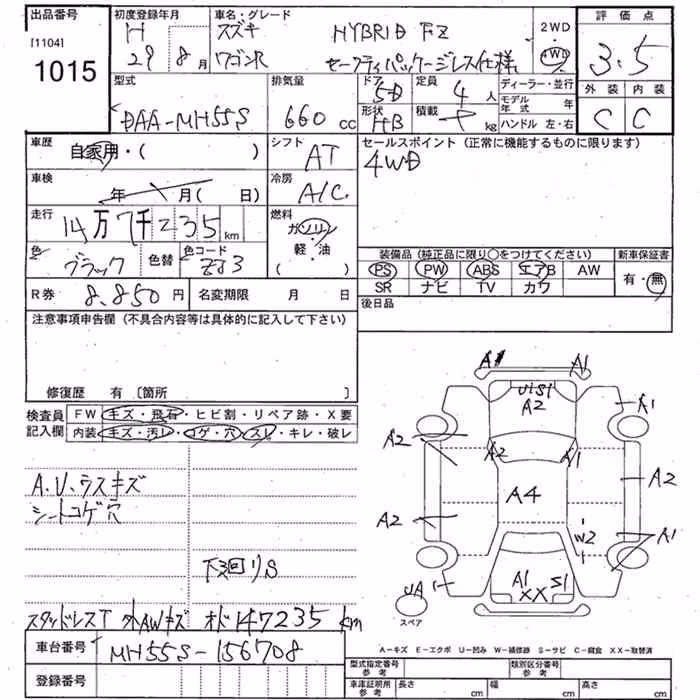 出品番号 初度登録年月 車名・グレード
[1104] H スズキ HYBRID FZ 2WD 評価点
1015 29 8月 ワゴンR セーフティパッケージレス仕様 4WD 3.5
型式 排気量 ドア 5D 定員 4人 ディーラー・並行 外装 内装
DAA-MH55S 660cc 形状 HB 積載 kg モデル年式 年 C C
ハンドル 左・右
車歴 自家用・( ) シフト AT セールスポイント(正常に機能するものに限ります)
4WD
車検 年 月( 日) 冷房 A/C
走行 14万7千235km 燃料 ガソリン 軽・油 ( )
色 ブラック 色替 色コード ZJ3
装備品(純正品に限り○をつけてください) 新車保証書
PS PW ABS エアB AW 有・無
SR ナビ TV カワ
R券 8,850円 名変期限 月 日 後日品
注意事項申告欄(不具合内容等は具体的に記入して下さい)
修復歴 有〔箇所 〕
検査員 FW キズ・飛石・ヒビ割・リペア跡・X要
記入欄 内装 キズ・汚レ・コゲ・穴・スレ・キレ・破レ
A.U.ウスキズ
シートコゲ穴
下廻りS
スタッドレスT 外AWキズ オド147235km
A1 A1
U1S1
A2
A1
A2
A2 A1
A2
A4
A2
W2 A1
UA
A1 S1
XX
スペア
A-キズ E-エクボ U-凹み W-補修跡 S-サビ C-腐食 XX-取替済
車台番号 MH55S-156708
登録番号
型式指定番号 参考 類別区分番号 参考
車庫証明用 参考 長さ cm 幅 cm 高さ cm